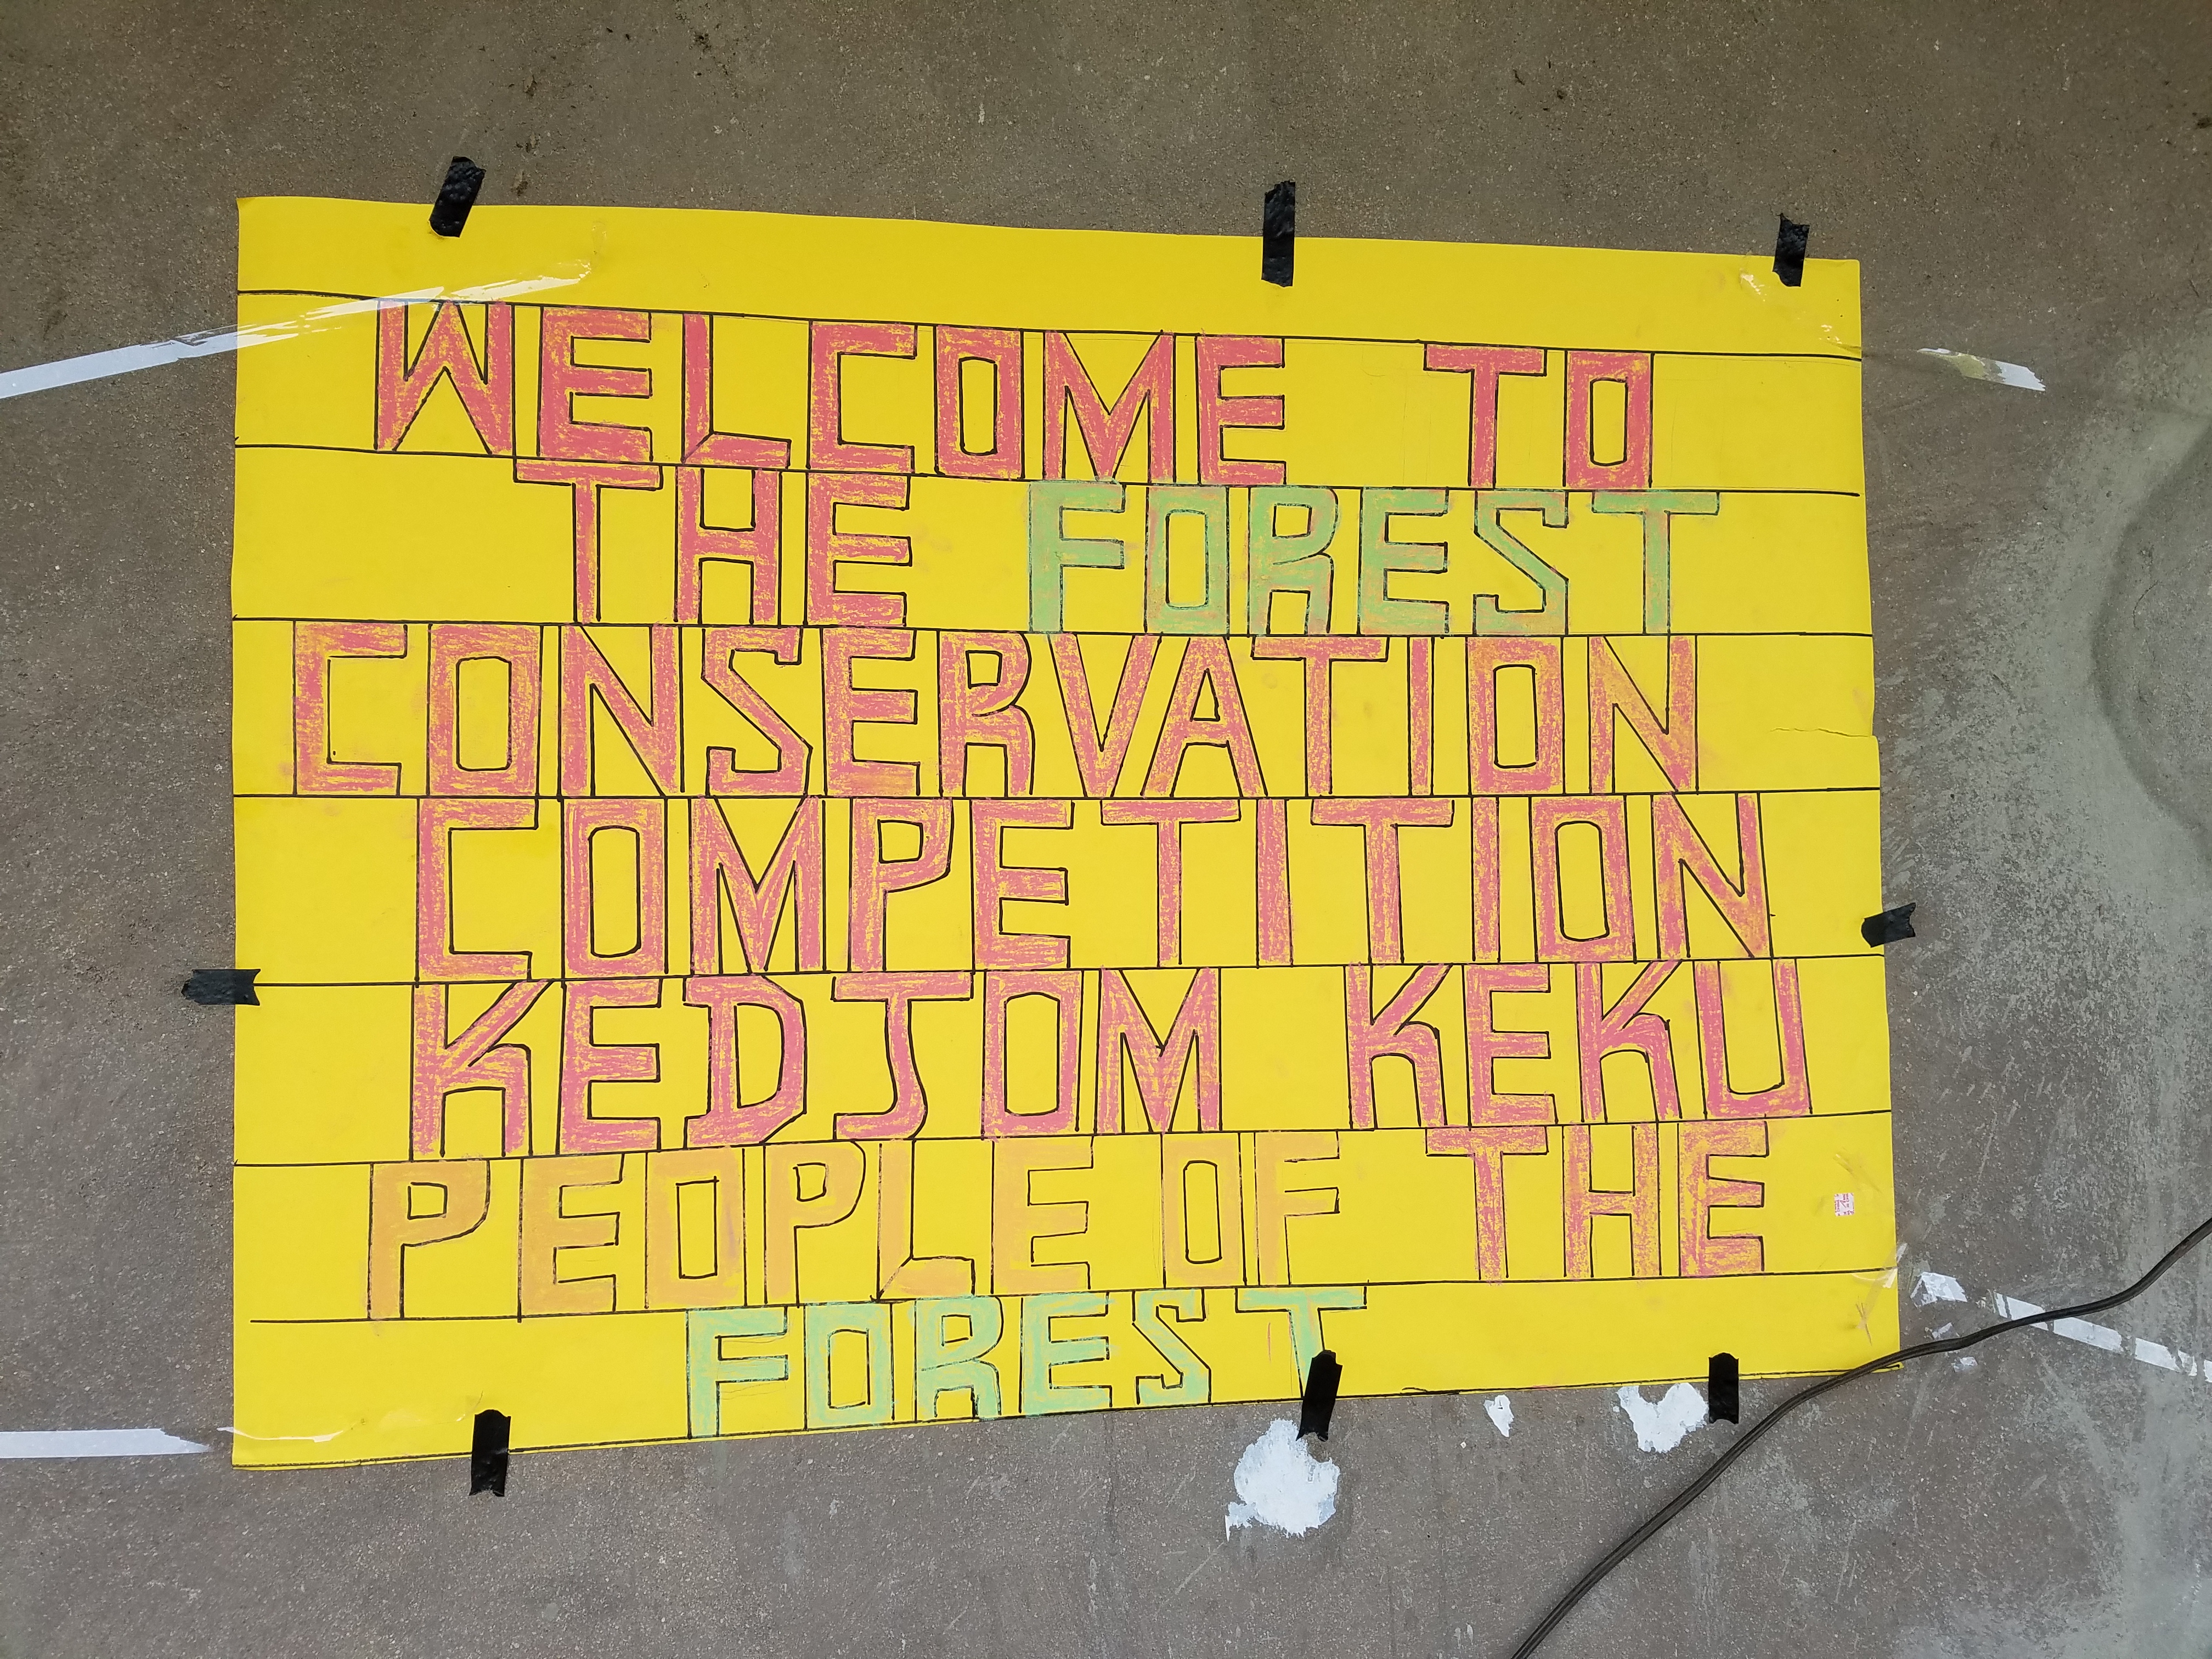 WELCOME TO
THE FOREST
CONSERVATION
COMPETITION
KEDJOM KEKU
PEOPLE OF THE
FOREST